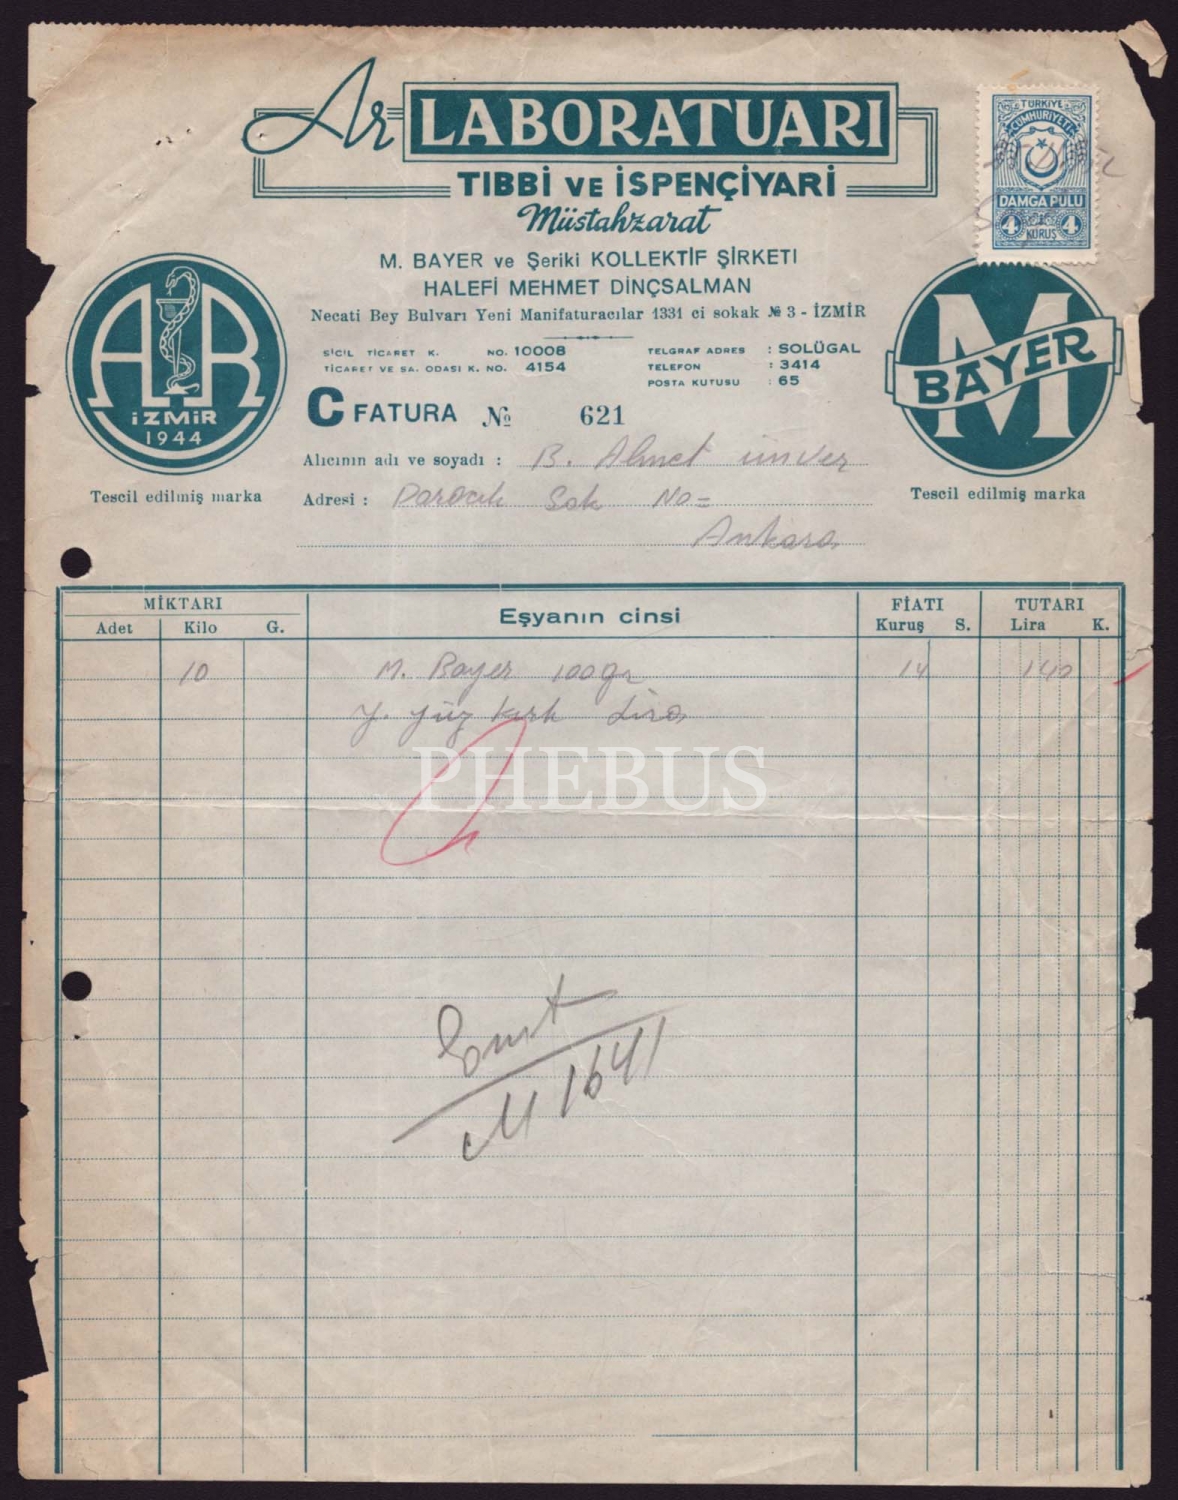 Ar LABORATUARI
TIBBİ VE İSPENÇİYARİ
Müstahzarat
M. BAYER ve Şeriki KOLLEKTİF ŞİRKETİ
HALEFİ MEHMET DİNÇSALMAN
Necati Bey Bulvarı Yeni Manifaturacılar 1331 ci sokak № 3 - İZMİR
SİCİL TİCARET K. NO. 10008
TİCARET VE SA. ODASI K. NO. 4154
TELGRAF ADRES : SOLÜGAL
TELEFON : 3414
POSTA KUTUSU : 65
TÜRKİYE
CUMHURİYETİ
DAMGA PULU
4 KURUŞ 4
AR
İZMİR
1944
Tescil edilmiş marka
M
BAYER
Tescil edilmiş marka
C FATURA № 621
Alıcının adı ve soyadı : B. Ahmet ünver
Adresi : Sok No=
Ankara
MİKTARI Eşyanın cinsi FİATI TUTARI
Adet Kilo G. Kuruş S. Lira K.
10 M. Bayer 100gr 14 140
Y. yüz kırk Lira
PHEBUS
1641